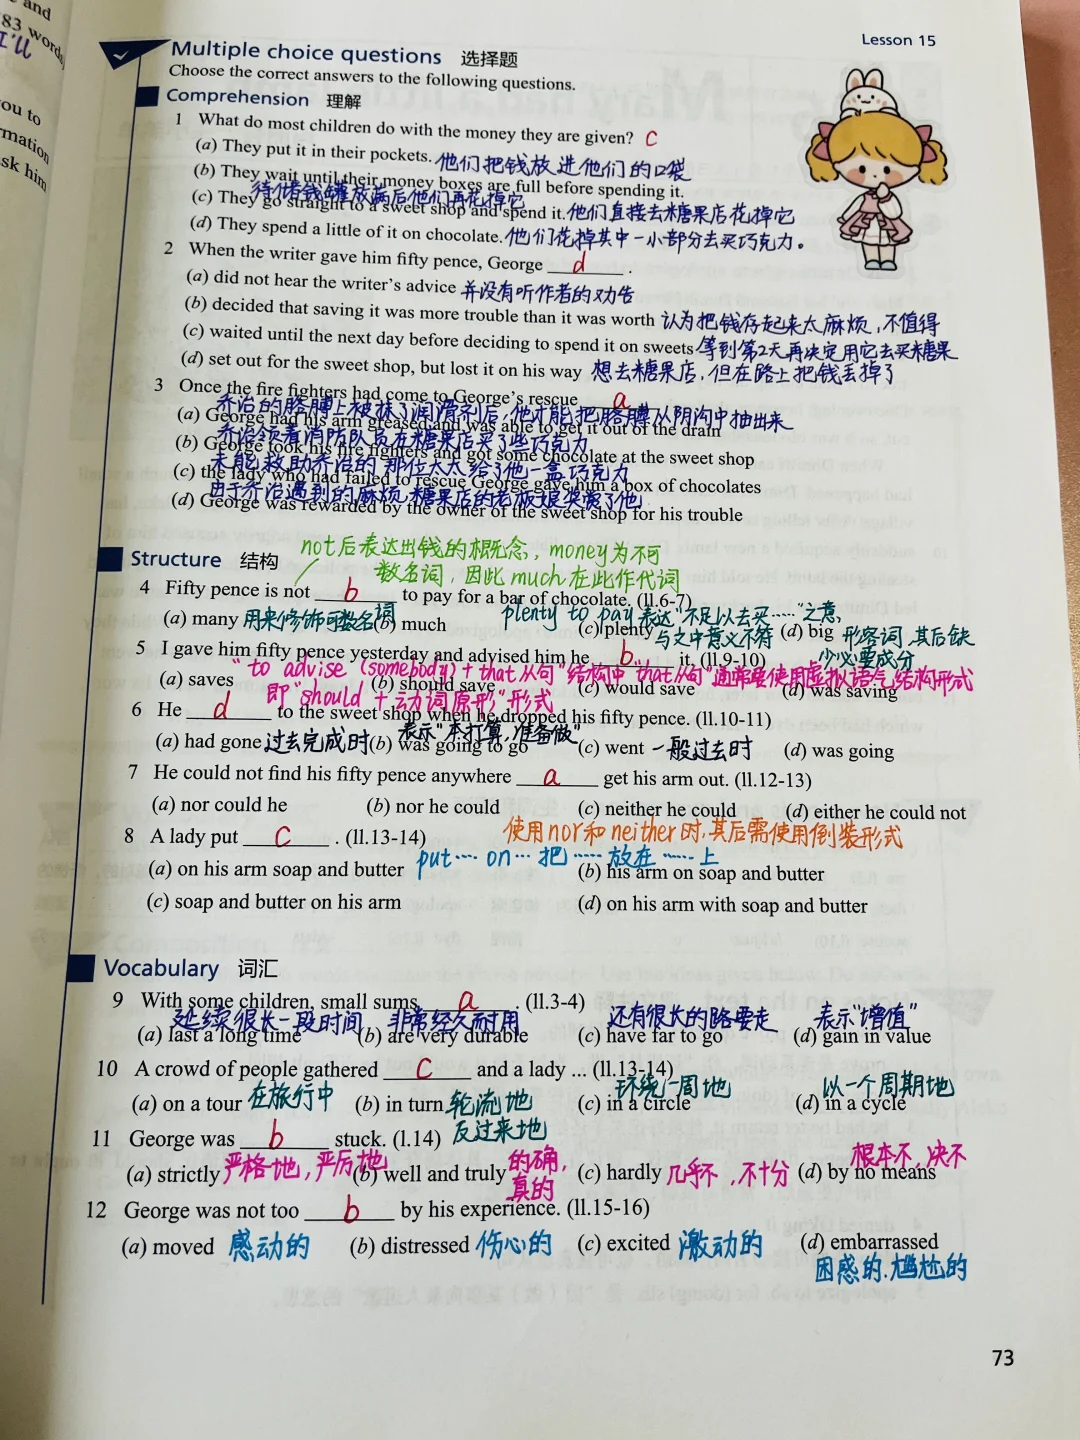 and
83 words
I'll
ou to
rmation
sk him
Lesson 15
Multiple choice questions 选择题
Choose the correct answers to the following questions.
Comprehension 理解
1 What do most children do with the money they are given? c
(a) They put it in their pockets. 他们把钱放进他们的口袋
(b) They wait until their money boxes are full before spending it.
待储钱罐放满后他们再花掉它
(c) They go straight to a sweet shop and spend it. 他们直接去糖果店花掉它
(d) They spend a little of it on chocolate. 他们花掉其中一小部分去买巧克力。
2 When the writer gave him fifty pence, George d .
(a) did not hear the writer's advice 并没有听作者的劝告
(b) decided that saving it was more trouble than it was worth 认为把钱存起来太麻烦,不值得
(c) waited until the next day before deciding to spend it on sweets 等到第2天再决定用它去买糖果
(d) set out for the sweet shop, but lost it on his way 想去糖果店,但在路上把钱丢掉了
3 Once the fire fighters had come to George's rescue a
乔治的胳膊上被抹了润滑剂后,他才能把胳膊从阴沟中抽出来
(a) George had his arm greased and was able to get it out of the drain
乔治领着消防队员在糖果店买了些巧克力
(b) George took his fire fighters and got some chocolate at the sweet shop
未能救助乔治的那位太太给了他一盒巧克力
(c) the lady who had failed to rescue George gave him a box of chocolates
由于乔治遇到的麻烦,糖果店的老板娘奖赏了他.
(d) George was rewarded by the owner of the sweet shop for his trouble
Structure 结构
not后表达出钱的概念,money为不可
数名词,因此much在此作代词
4 Fifty pence is not b to pay for a bar of chocolate. (ll.6-7)
plenty to pay 表达"不足以去买……"之意,
(a) many 用来修饰可数名词 (b) much (c) plenty 与文中意义不符 (d) big 形容词,其后缺
少必要成分
5 I gave him fifty pence yesterday and advised him he b it. (ll.9-10)
"to advise (somebody)+that从句"结构中"that从句"通常要使用虚拟语气结构形式
(a) saves (b) should save (c) would save (d) was saving
即"should + 动词原形"形式
6 He d to the sweet shop when he dropped his fifty pence. (ll.10-11)
表示"本打算,准备做"
(a) had gone 过去完成时 (b) was going to go (c) went 一般过去时 (d) was going
7 He could not find his fifty pence anywhere a get his arm out. (ll.12-13)
(a) nor could he (b) nor he could (c) neither he could (d) either he could not
使用nor和neither时,其后需使用倒装形式
8 A lady put c . (ll.13-14)
put … on … 把 …… 放在 …… 上
(a) on his arm soap and butter (b) his arm on soap and butter
(c) soap and butter on his arm (d) on his arm with soap and butter
Vocabulary 词汇
9 With some children, small sums a . (ll.3-4)
延续很长一段时间 非常经久耐用 还有很长的路要走 表示"增值"
(a) last a long time (b) are very durable (c) have far to go (d) gain in value
10 A crowd of people gathered c and a lady ... (ll.13-14)
环绕一周地 以一个周期地
(a) on a tour 在旅行中 (b) in turn 轮流地 (c) in a circle (d) in a cycle
反过来地
11 George was b stuck. (l.14)
(a) strictly 严格地,严厉地 (b) well and truly 的确,真的 (c) hardly 几乎不,不十分 (d) by no means 根本不,决不
12 George was not too b by his experience. (ll.15-16)
(a) moved 感动的 (b) distressed 伤心的 (c) excited 激动的 (d) embarrassed
困惑的.尴尬的
73